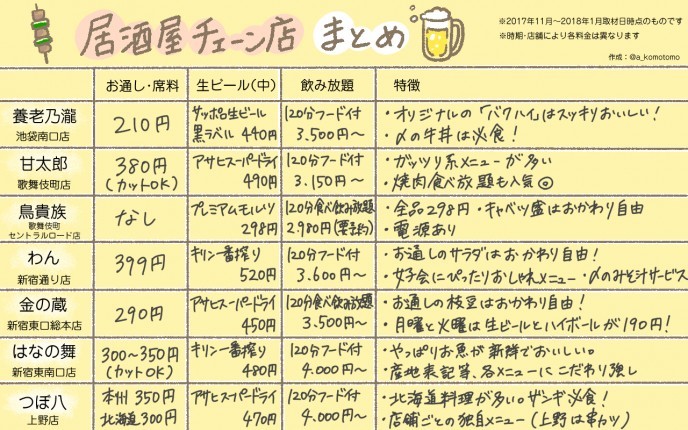 居酒屋チェーン店 まとめ
※2017年11月～2018年1月取材日時点のものです
※時期・店舗により各料金は異なります
作成：@a_komotomo
お通し・席料 生ビール(中) 飲み放題 特徴
養老乃瀧
池袋南口店
210円
サッポロ生ビール
黒ラベル 440円
120分フード付
3.500円～
・オリジナルの「バクハイ」はスッキリおいしい！
・〆の牛丼は必食！
甘太郎
歌舞伎町店
380円
(カットOK)
アサヒスーパードライ
490円
120分フード付
3.150円～
・ガッツリ系メニューが多い
・焼肉食べ放題も人気◎
鳥貴族
歌舞伎町
セントラルロード店
なし
プレミアムモルツ
298円
120分食べ飲み放題
2.980円(要予約)
・全品298円・キャベツ盛はおかわり自由
・電源あり
わん
新宿通り店
399円
キリン一番搾り
520円
120分フード付
3.600円～
・お通しのサラダはおかわり自由！
・女子会にぴったりおしゃれメニュー・〆のみそ汁サービス
金の蔵
新宿東口総本店
290円
アサヒスーパードライ
450円
120分食べ飲み放題
3.500円～
・お通しの枝豆はおかわり自由！
・月曜と火曜は生ビールとハイボールが190円！
はなの舞
新宿東南口店
300～350円
(カットOK)
キリン一番搾り
480円
120分フード付
4.000円～
・やっぱりお魚が新鮮でおいしい。
・産地表記等、各メニューにこだわり強し
つぼ八
上野店
本州 350円
北海道 300円
アサヒスーパードライ
470円
120分フード付
4.000円～
・北海道料理が多い。ザンギ必食！
・店舗ごとの独自メニュー(上野は串カツ)